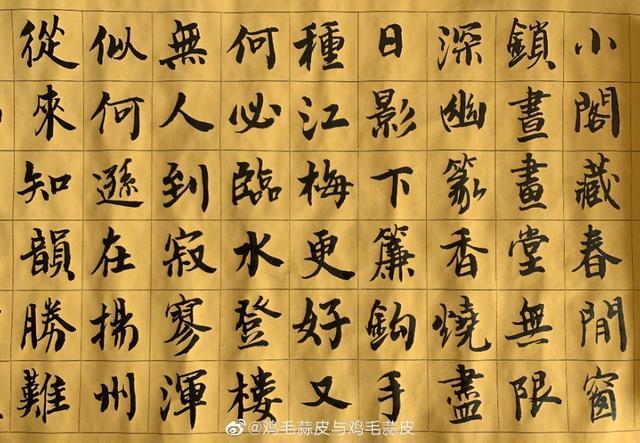 小閣藏春閒窗
鎖晝畫堂無限
深幽篆香燒盡
日影下簾鈎手
種江梅更好又
何必臨水登樓
無人到寂寥渾
似何遜在揚州
從來知韻勝難
@鸡毛蒜皮与鸡毛蒜皮